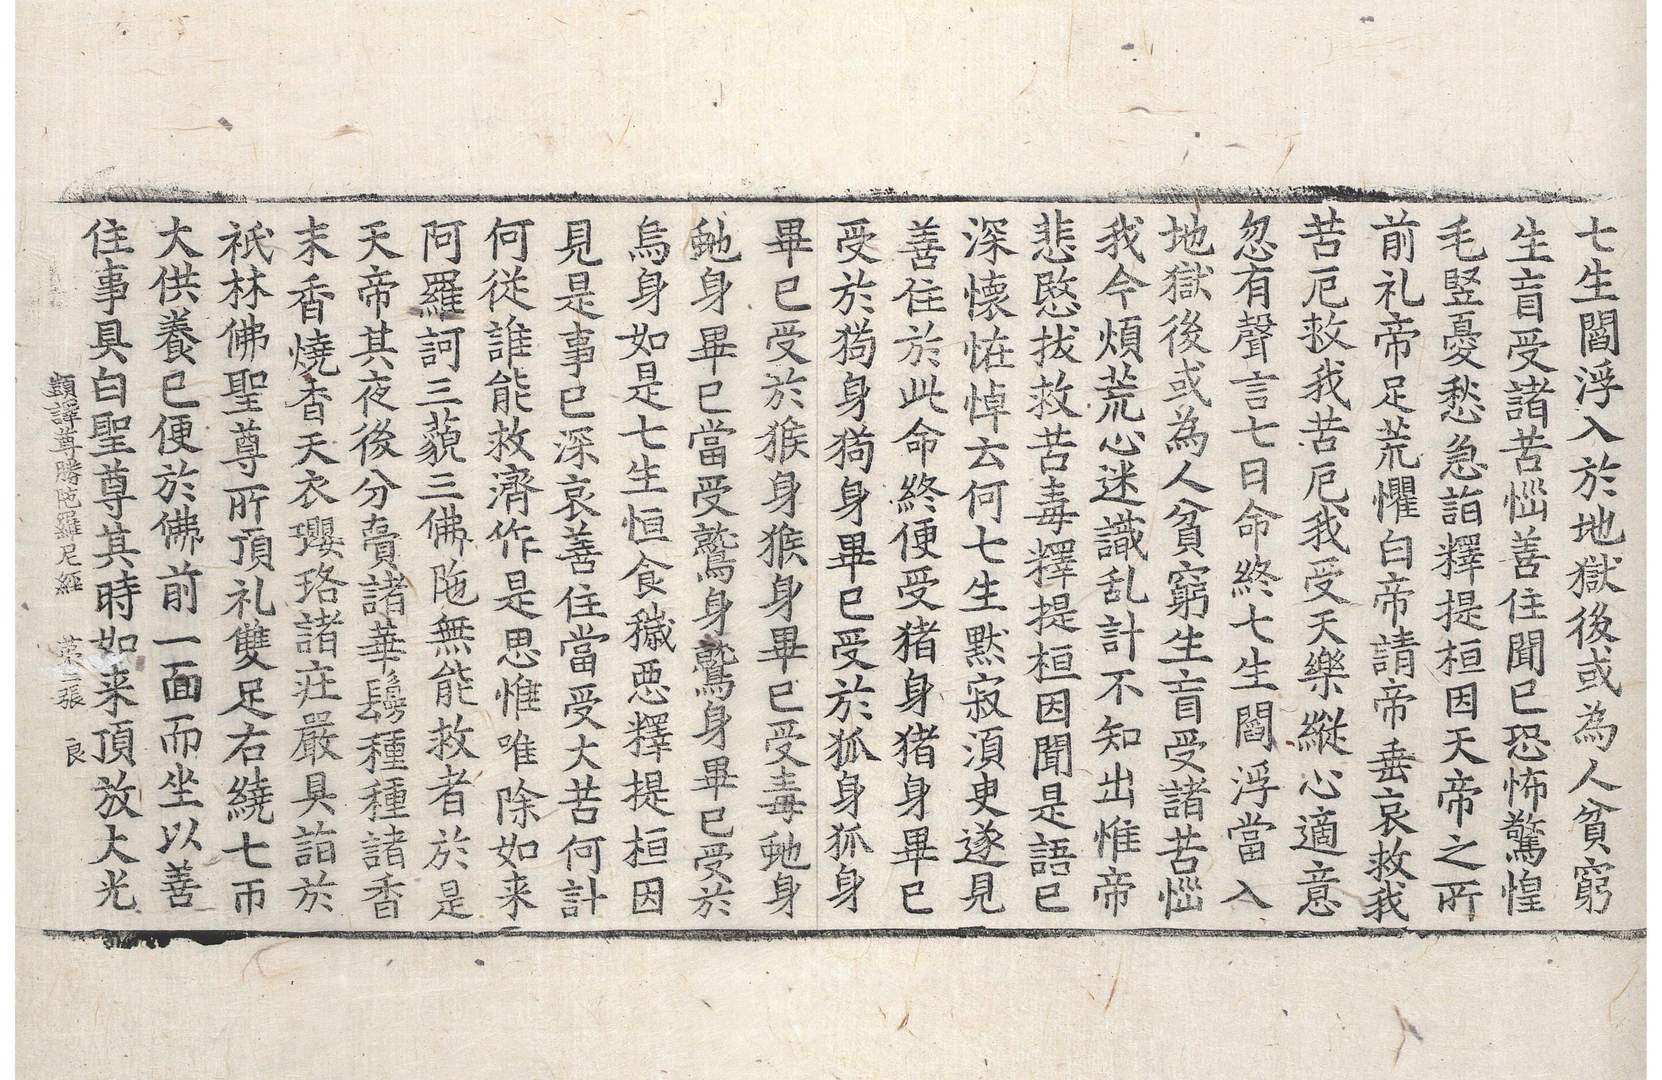 七生閻浮入於地獄後或為人貧窮
生盲受諸苦惱善住聞已恐怖驚惶
毛竪憂愁急詣釋提桓因天帝之所
前礼帝足荒懼白帝請帝垂哀救我
苦厄救我苦厄我受天樂縱心適意
忽有聲言七日命終七生閻浮當入
地獄後或為人貧窮生盲受諸苦惱
我今煩荒心迷識乱計不知出惟帝
悲愍拔救苦毒釋提桓因聞是語已
深懷恠悼云何七生默寂須臾遂見
善住於此命終便受猪身猪身畢已
受於猗身猗身畢已受於狐身狐身
畢已受於猴身猴身畢已受毒虵身
虵身畢已當受鷲身鷲身畢已受於
烏身如是七生恒食穢惡釋提桓因
見是事已深哀善住當受大苦何計
何從誰能救濟作是思惟唯除如来
阿羅訶三藐三佛陁無能救者於是
天帝其夜後分賷諸華鬘種種諸香
末香燒香天衣瓔珞諸庄嚴具詣於
祇林佛聖尊所頂礼雙足右繞七帀
大供養已便於佛前一面而坐以善
住事具白聖尊其時如来頂放大光
顗譯尊勝陁羅尼經 張 良